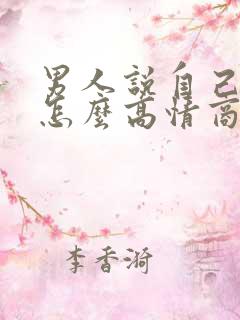 男人說自己
怎麼高情商
李香漪